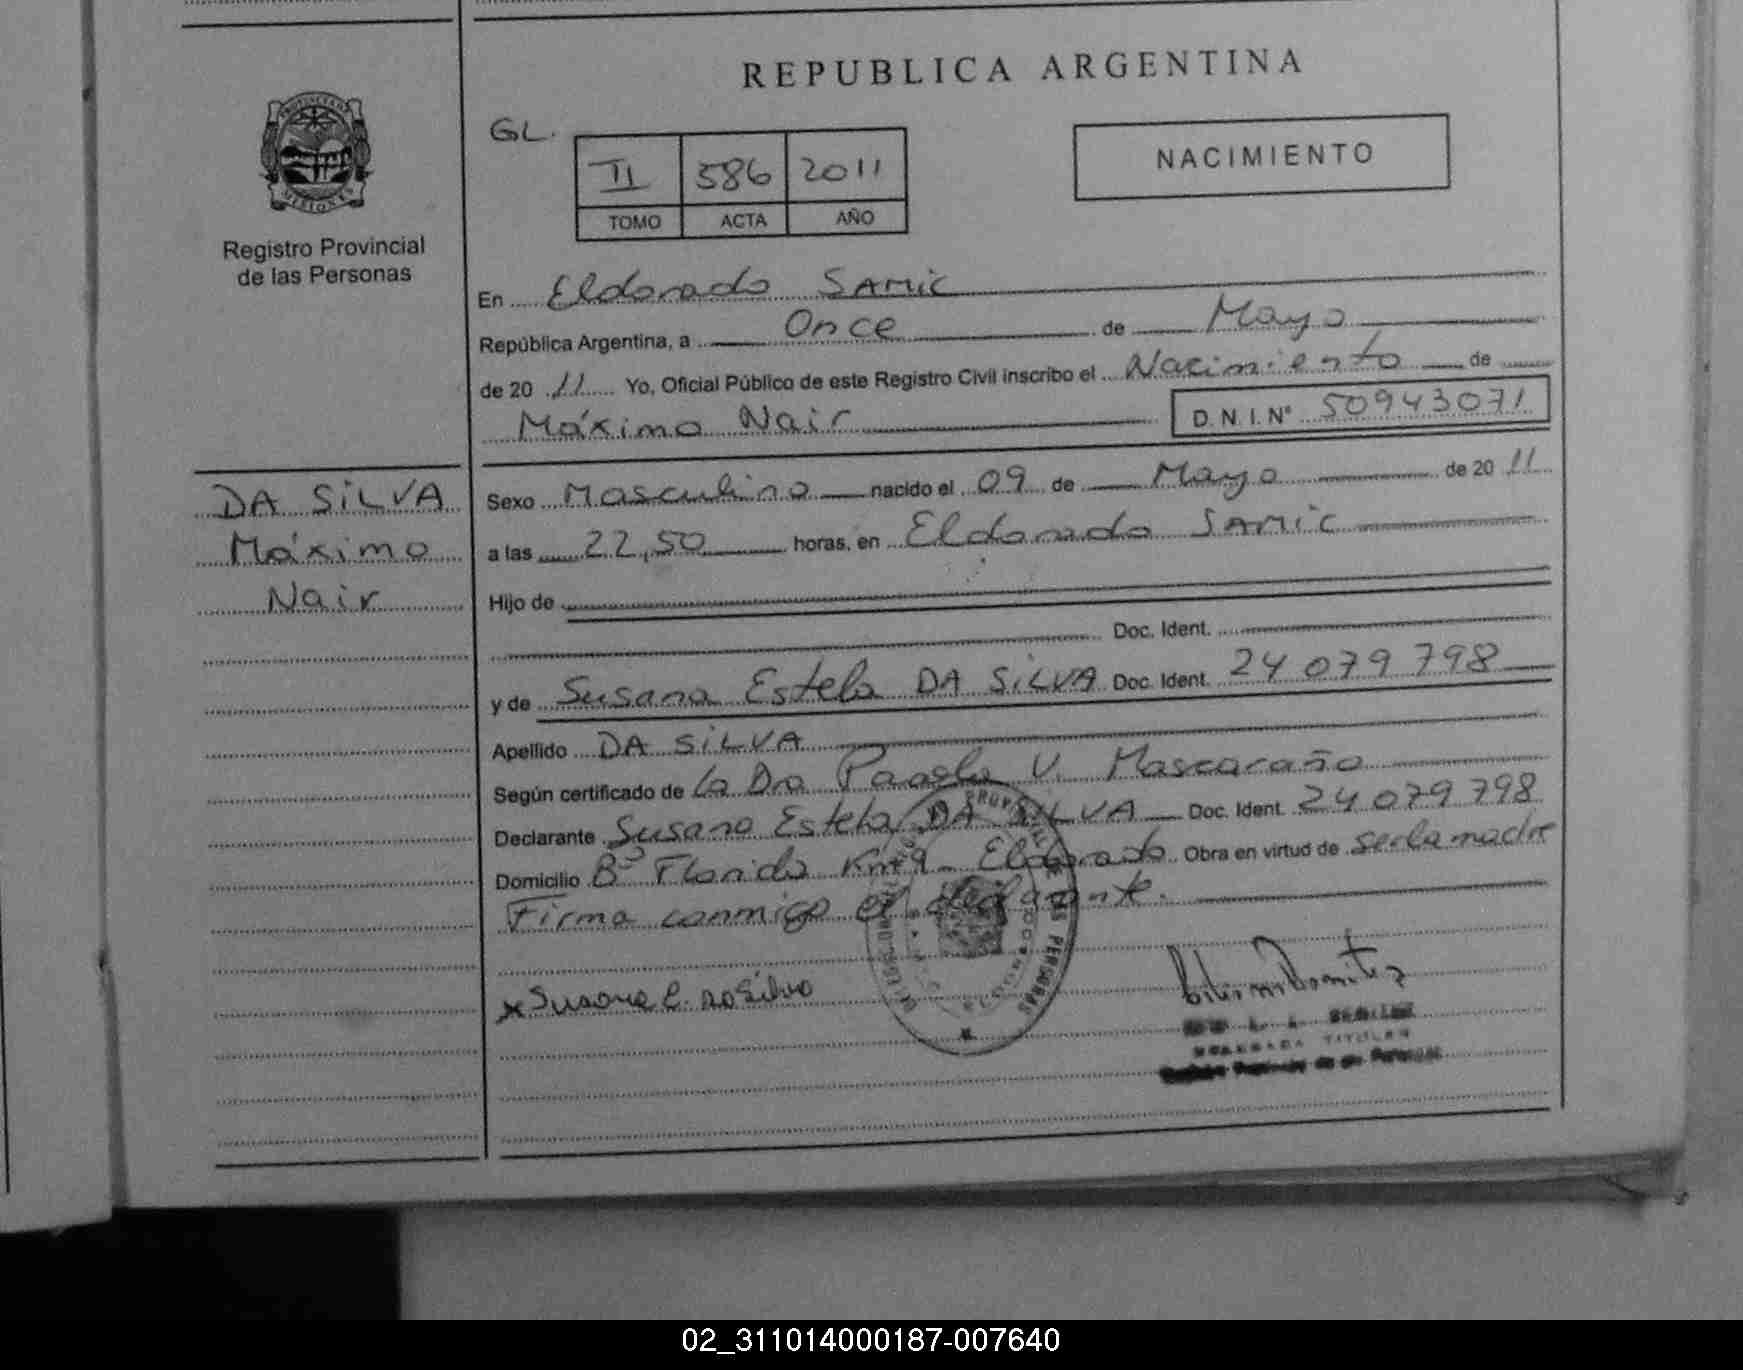 REPUBLICA ARGENTINA
PROVINCIA DE
MISIONES
Registro Provincial
de las Personas
GL.
II 586 2011
TOMO ACTA AÑO
NACIMIENTO
En Eldorado SAMIC
República Argentina, a Once de Mayo
de 20 11 Yo, Oficial Público de este Registro Civil inscribo el Nacimiento de
Máximo Nair D. N. I. Nº 50943071
DA SILVA
Máximo
Nair
Sexo Masculino nacido el 09 de Mayo de 20 11
a las 22,50 horas, en Eldorado SAMIC
Hijo de
Doc. Ident.
y de Susana Estela DA SILVA Doc. Ident. 24 079 798
Apellido DA SILVA
Según certificado de La Dra Paola V. Mascaraño
Declarante Susana Estela DA SILVA Doc. Ident. 24 079 798
Domicilio Bº Florida Km 9 - Eldorado Obra en virtud de ser la madre
Firma conmigo el
x Susana E. da Silva
TITULAR
02_311014000187-007640